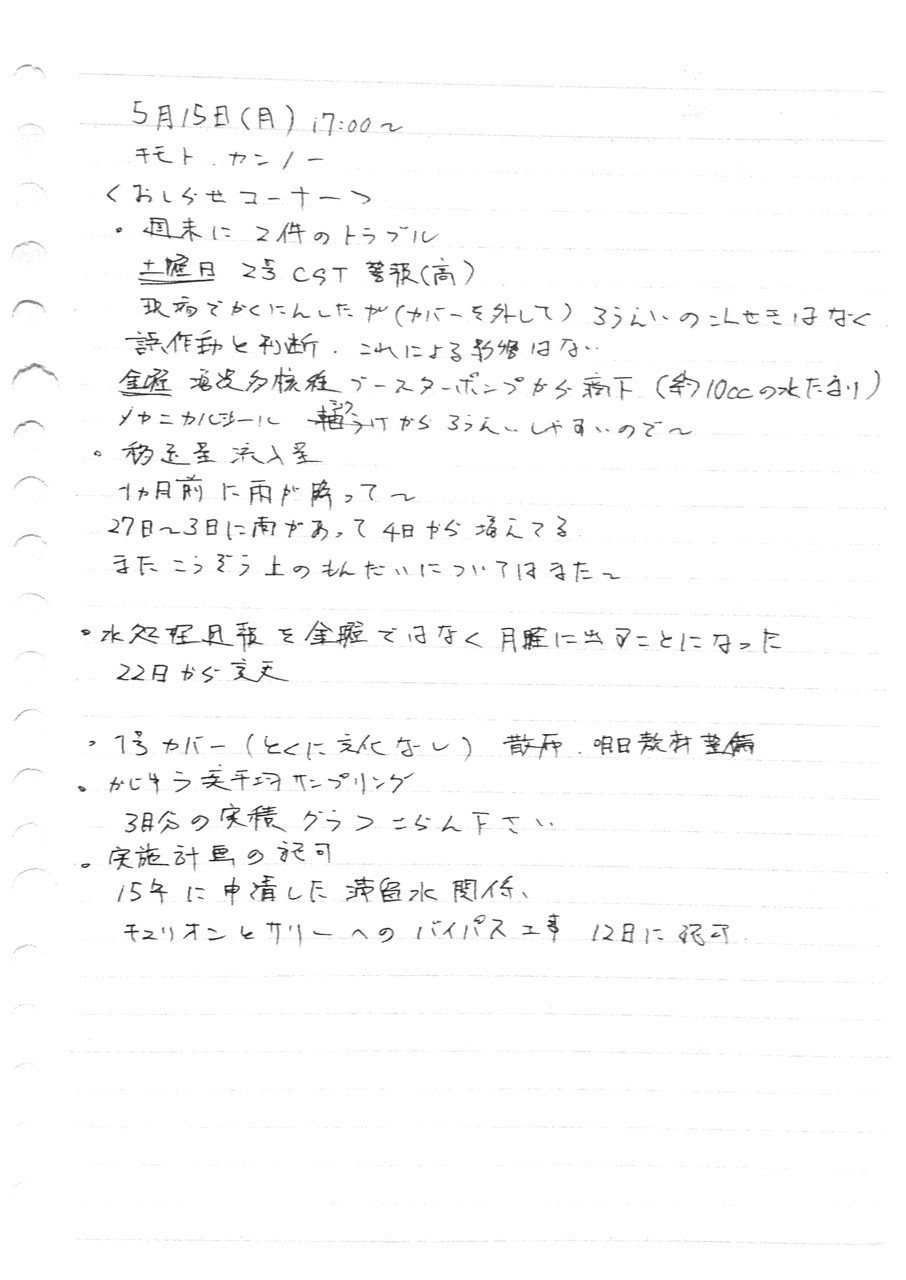 5月15日(月) 17:00〜
キモト.カンノー
<おしらせコーナー>
・週末に2件のトラブル
土曜日 2号CST警報(高)
現場でかくにんしたが(カバーを外して)ろうえいのこんせきはなく
誤作動と判断.これによる影響はない
金曜 増設多核種ブースターポンプから滴下(約10ccの水たまり)
メカニカルシール 軸うけからろうえいしやすいので〜
・移送量 流入量
1ヵ月前に雨が降って〜
27日〜3日に雨があって4日から増えてる
またこうぞう上のもんだいについてはまた〜
・水処理週報を金曜ではなく月曜に出すことになった
22日から
・1号カバー(とくに変化なし) 散布.明日 整備
・かじゅう平均サンプリング
3月分の実積グラフごらん下さい
・実施計画の認可
15年に申請した滞留水関係、
チュリオンとサリーへのバイパス工事 12日に認可.